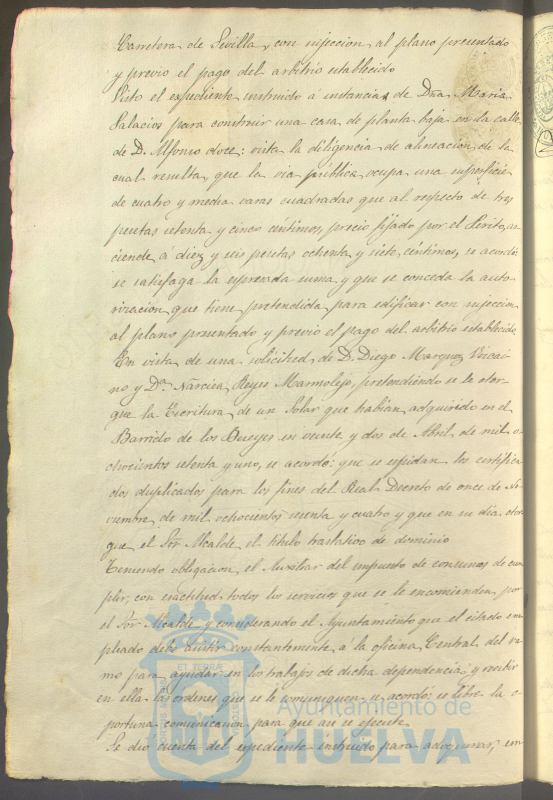 Carretera de Sevilla, con sujecion al plano presentado
y previo el pago del arbitrio establecido
Visto el expediente instruido á instancias de Dña. Maria
Palacios para construir una casa de planta baja en la calle
de D. Alfonso doce: vista la diligencia de alineacion de la
cual resulta, que la via pública ocupa una superficie
de cuatro y media varas cuadradas que al respecto de tres
pesetas setenta y cinco céntimos, precio fijado por el Perito, as
ciende á diez y seis pesetas ochenta y siete céntimos, se acordó:
se satisfaga la espresada suma y que se conceda la auto-
rizacion que tiene pretendida para edificar con sujecion
al plano presentado y previo el pago del arbitrio establecido
En vista de una solicitud de D. Diego Marquez Vizcai-
no y Dª Narcisa Reyes Marmolejo, pretendiendo se le otor-
gue la Escritura de un Solar que habian adquirido en el
Barrido de los Bueyes en veinte y dos de Abril de mil o-
chocientos setenta y uno, se acordó: que se espidan los certifica
dos duplicados para los fines del Real Decreto de once de No-
viembre de mil ochocientos sesenta y cuatro y que en su dia otor
gue el Sor Alcalde el titulo traslativo de dominio
Teniendo obligacion el Auxiliar del impuesto de consumos de cum
plir con esactitud todos los servicios que se le encomienden por
el Sor Alcalde y considerando el Ayuntamiento que el citado em
pleado debe asistir constantemente á la oficina Central del ra
mo para ayudar en los trabajos de dicha dependencia y recibir
en ella las ordenes que se le comuniquen se acordó: se libre la o-
portuna comunicacion para que asi se ejecute
Se dió cuenta del espediente instruido para adoquinar, em
ET TERRAE
Ayuntamiento de
HUELVA